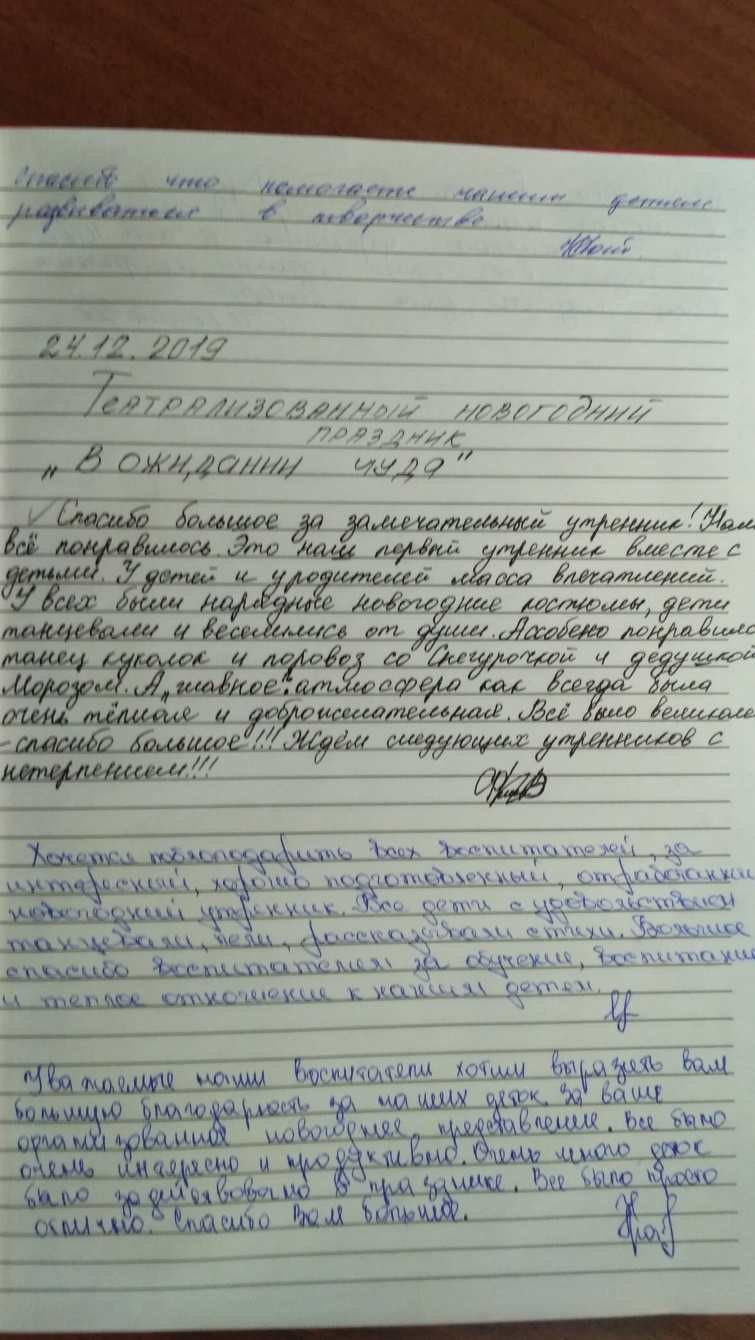 Спасибо что помогаете нашим детям
развиваться в творчестве
24.12.2019
Театрализованный новогодний
праздник
„В ожидании чуда"
Спасибо большое за замечательный утренник! Нам
всё понравилось. Это наш первый утренник вместе с
детьми. У детей и уродителей масса впечатлений.
У всех были нарядные новогодние костюмы, дети
танцевали и веселились от души. Ассобено понравился
танец куколок и поровоз со Снегурочкой и дедушкой
Морозом. А „главное": атмосфера как всегда была
очень тёплая и доброжелательная. Всё было великоле
-спасибо большое!!! Ждём следующих утренников с
нетерпением!!!
Хочется поблагодарить всех воспитателей, за
интересный, хорошо подготовленный, отработанный
новогодний утренник. Все дети с удовольствием
танцевали, пели, рассказывали стихи. Большое
спасибо воспитателям за обучение, воспитание
и теплое отношение к нашим детям.
Уважаемые наши воспитатели хотим выразить вам
большую благодарность за наших деток. За ваше
организованное новогоднее представление. Все было
очень интересно и продуктивно. Очень много деток
было задействовано в празднике. Все было просто
отлично. Спасибо Вам большое.